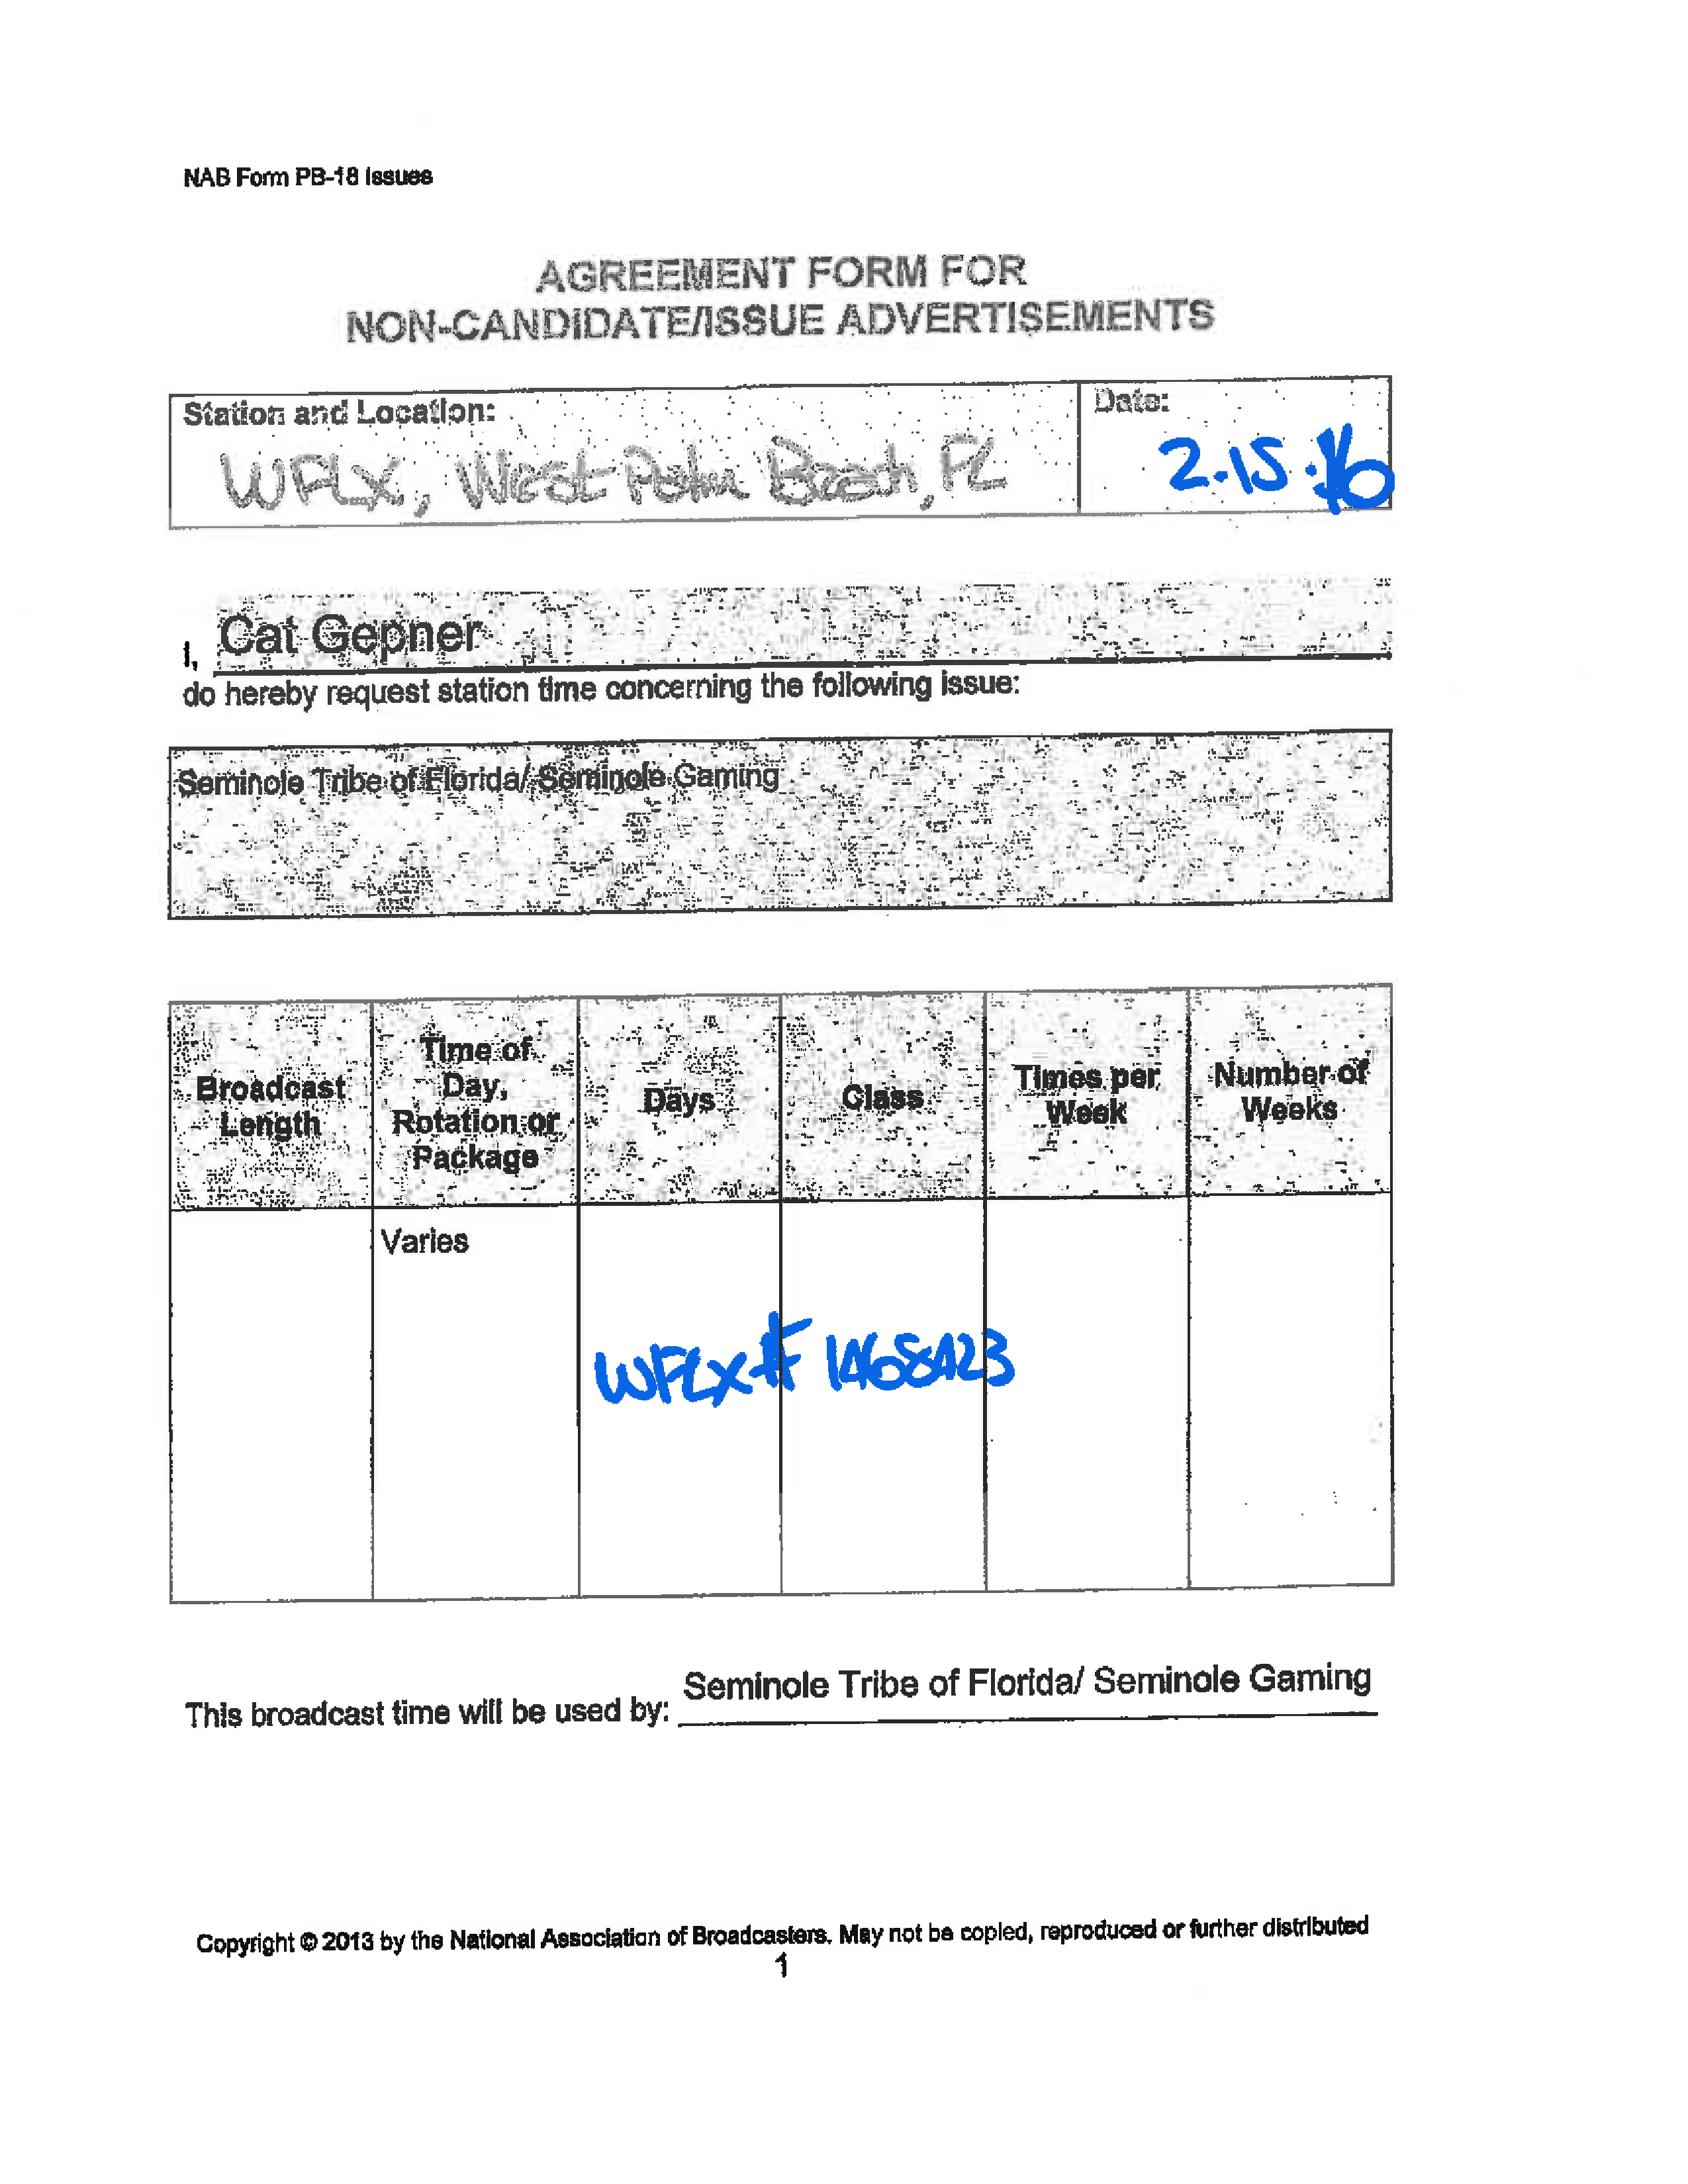 NAB Form PB-18 Issues
AGREEMENT FORM FOR
NON-CANDIDATE/ISSUE ADVERTISEMENTS
Station and Location:
Date:
WFLX, West Palm Beach, FL
2.15.16
I, Cat Gepner
do hereby request station time concerning the following issue:
Seminole Tribe of Florida/ Seminole Gaming
Broadcast
Length
Time of
Day,
Rotation or
Package
Days
Class
Times per
Week
Number of
Weeks
Varies
WFLX# 1468423
This broadcast time will be used by: Seminole Tribe of Florida/ Seminole Gaming
Copyright © 2013 by the National Association of Broadcasters. May not be copied, reproduced or further distributed
1